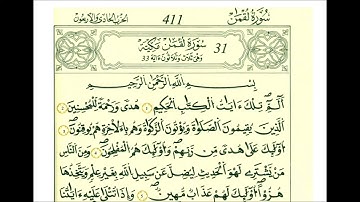 سُورَةُ لُقْمَٰنَ 411 الحزب الحادي والأربعون
31 سُورَةُ لُقْمَٰنَ مَكِّيَّة
وَهِيَ ثَلَاثٌ وَثَلَاثُونَ ءَايَة 33
بِسْمِ اللَّهِ الرَّحْمَٰنِ الرَّحِيمِ
أَلَمِّٓ تِلْكَ ءَايَٰتُ الْكِتَٰبِ الْحَكِيمِ هُدًى وَرَحْمَةً لِّلْمُحْسِنِينَ
الَّذِينَ يُقِيمُونَ الصَّلَوٰةَ وَيُوتُونَ الزَّكَوٰةَ وَهُم بِالَاخِرَةِ هُمْ يُوقِنُونَ
أُوْلَٰئِكَ عَلَىٰ هُدًى مِّن رَّبِّهِمْ وَأُوْلَٰئِكَ هُمُ الْمُفْلِحُونَ وَمِنَ النَّاسِ
مَنْ يَّشْتَرِي لَهْوَ الْحَدِيثِ لِيُضِلَّ عَن سَبِيلِ اللَّهِ بِغَيْرِ عِلْمٍ وَيَتَّخِذُهَا
هُزُؤًا أُوْلَٰئِكَ لَهُمْ عَذَابٌ مُّهِينٌ وَإِذَا تُتْلَىٰ عَلَيْهِ ءَايَٰتُنَا